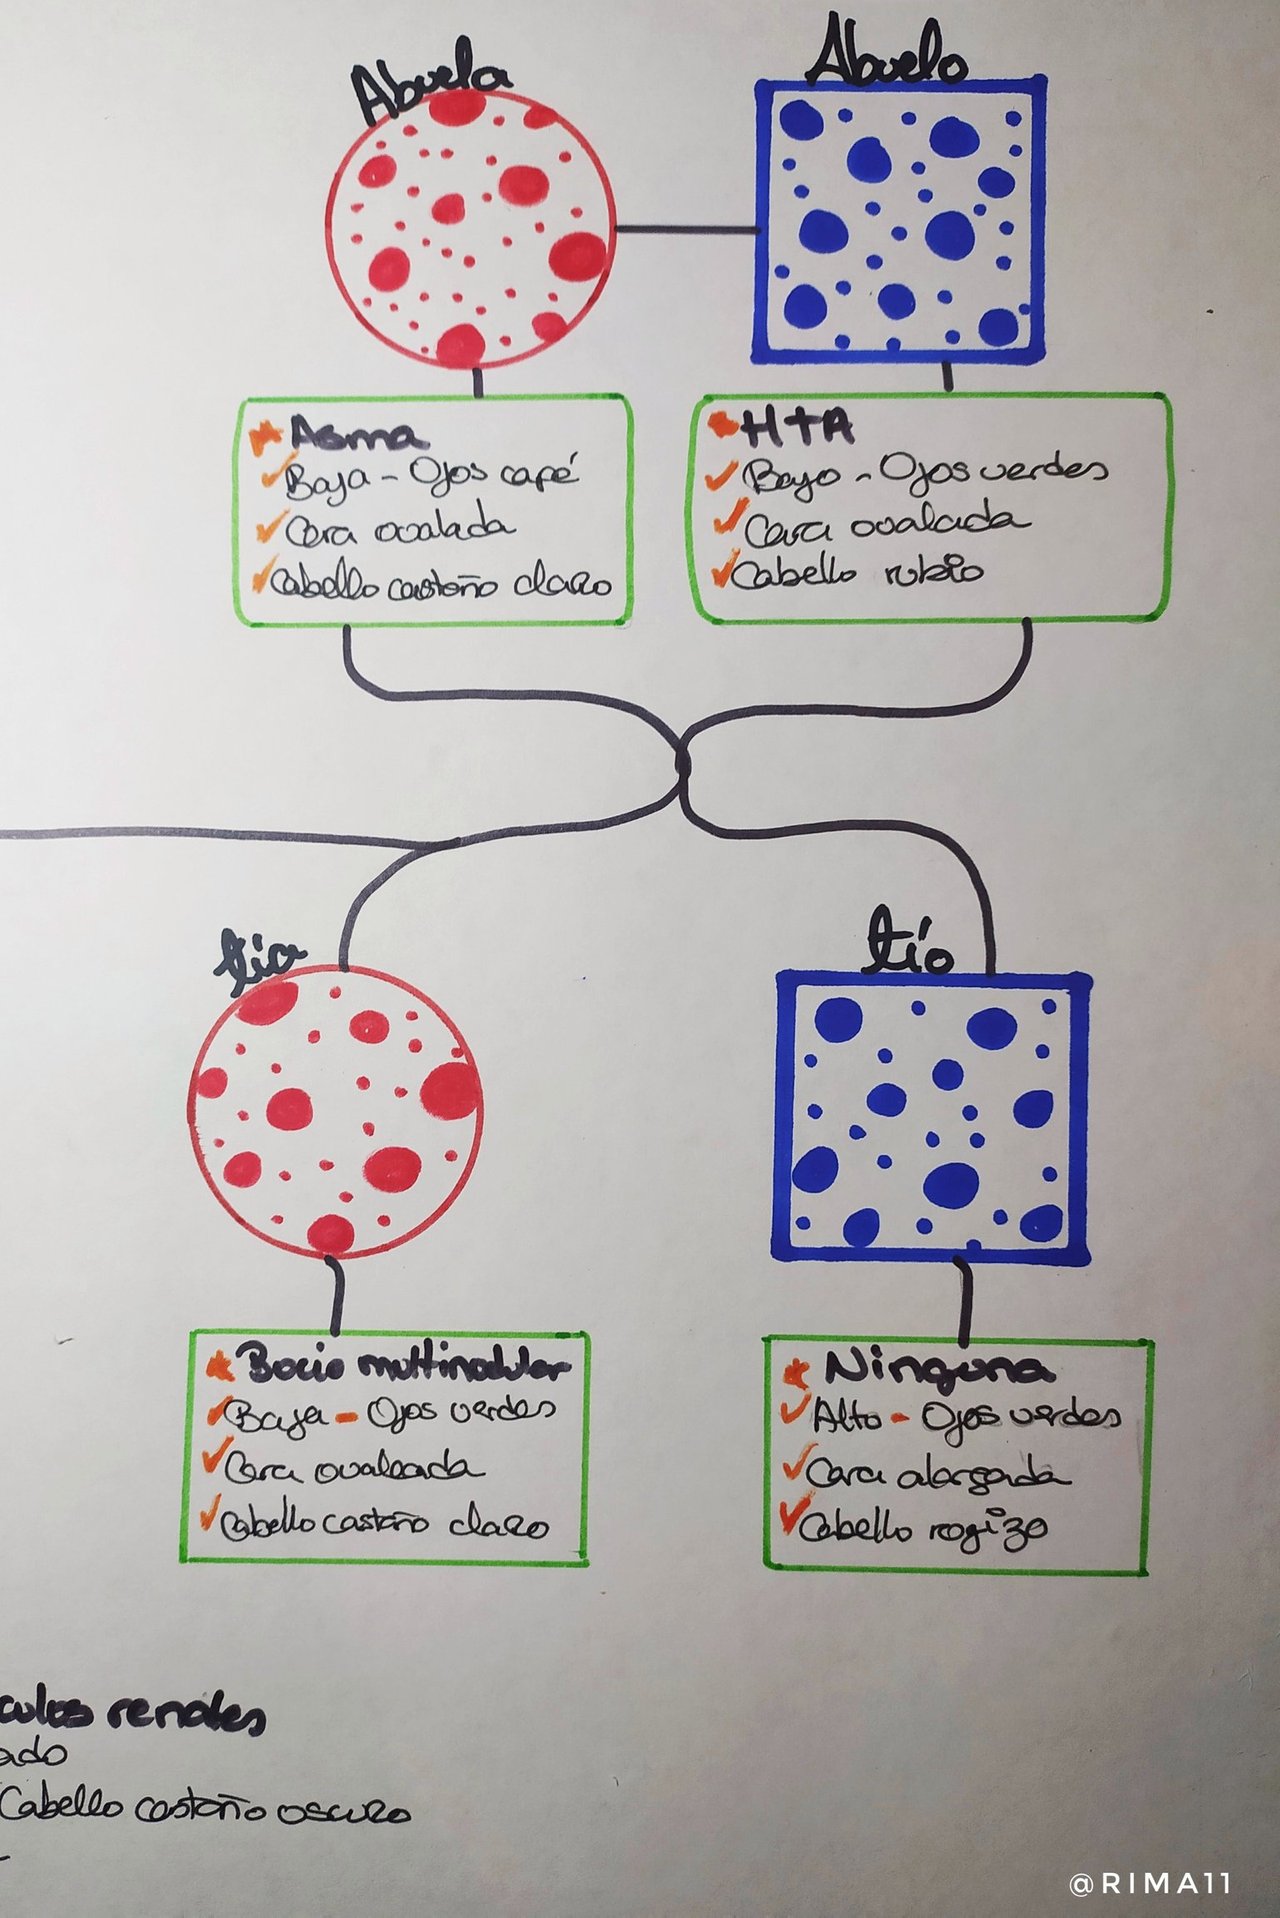 Abuela
Abuelo
Asma
Baja - Ojos café
Cara ovalada
Cabello castaño claro
HTA
Bajo - Ojos verdes
Cara ovalada
Cabello rubio
tía
tío
Bocio multinodular
Baja - Ojos verdes
Cara ovaleada
Cabello castaño claro
Ninguna
Alto - Ojos verdes
Cara alargada
Cabello rogizo
culos renales
ado
Cabello castaño oscuro
@RIMA11